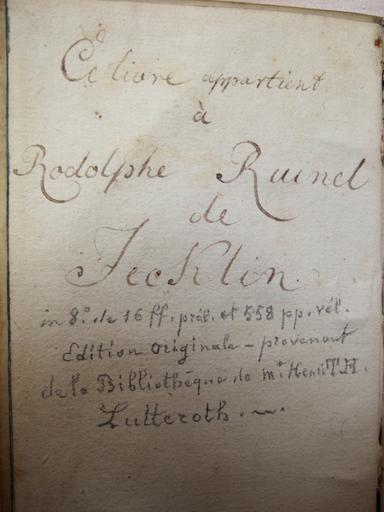 Ce livre appartient
à
Rodolphe Ruinel
de
Jecklin.
in 8.º de 16 ff. prél. et 558 pp. vél.
Edition originale – provenant
de la Bibliothèque de Mr Henri
Lutteroth. —